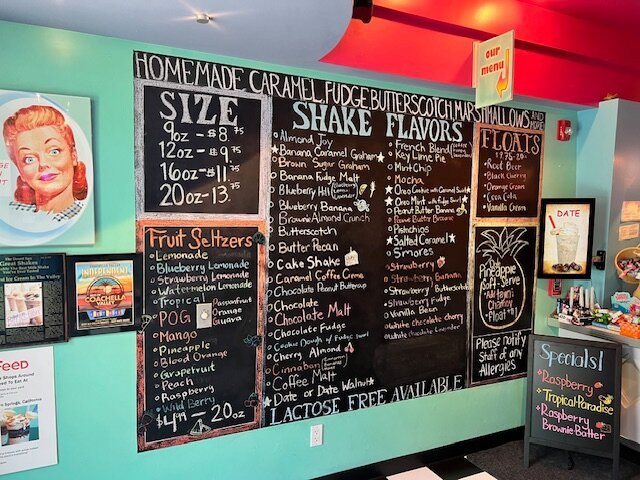 our
menu
HOMEMADE CARAMEL, FUDGE, BUTTERSCOTCH, MARSHMALLOWS AND MORE
SIZE
9oz - $8.75
12oz - $9.75
16oz - $11.75
20oz - 13.75
Fruit Seltzers
Lemonade
Blueberry Lemonade
Strawberry Lemonade
Watermelon Lemonade
Tropical
POG
Passionfruit
Orange
Guava
Mango
Pineapple
Blood Orange
Grapefruit
Peach
Raspberry
Wild Berry
$4.99 - 20oz
SHAKE FLAVORS
Almond Joy
Banana Caramel Graham
Brown Sugar Graham
Banana Fudge Malt
Blueberry Hill
Blueberry Banana
Brownie Almond Crunch
Butterscotch
Butter Pecan
Cake Shake
Caramel Coffee Crème
Chocolate Peanut Butter
Chocolate
Chocolate Malt
Chocolate Fudge
Cookie Dough w/ Fudge Swirl
Cherry Almond
Cinnaban
Coffee Malt
Date or Date Walnut
French Blend
Key Lime Pie
Mint Chip
Mocha
Oreo Cookie with Caramel Swirl
Oreo Mint with Fudge Swirl
Peanut Butter Banana
Peanut Butter Brownie
Pistachios
Salted Caramel
S'mores
Strawberry
Strawberry Banana
Strawberry Fudge
Vanilla Bean
White chocolate cherry
White chocolate Lavender
LACTOSE FREE AVAILABLE
FLOATS
Root Beer
Black Cherry
Orange Cream
Coca Cola
Vanilla Cream
Pineapple
Soft-Serve
Float
Please notify
Staff of any
Allergies
DATE
Great Shakes
INDEPENDENT
COACHELLA
VALLEY
FEED
Springs, California
Specials!
Raspberry
Tropical Paradise
Raspberry
Brownie Batter